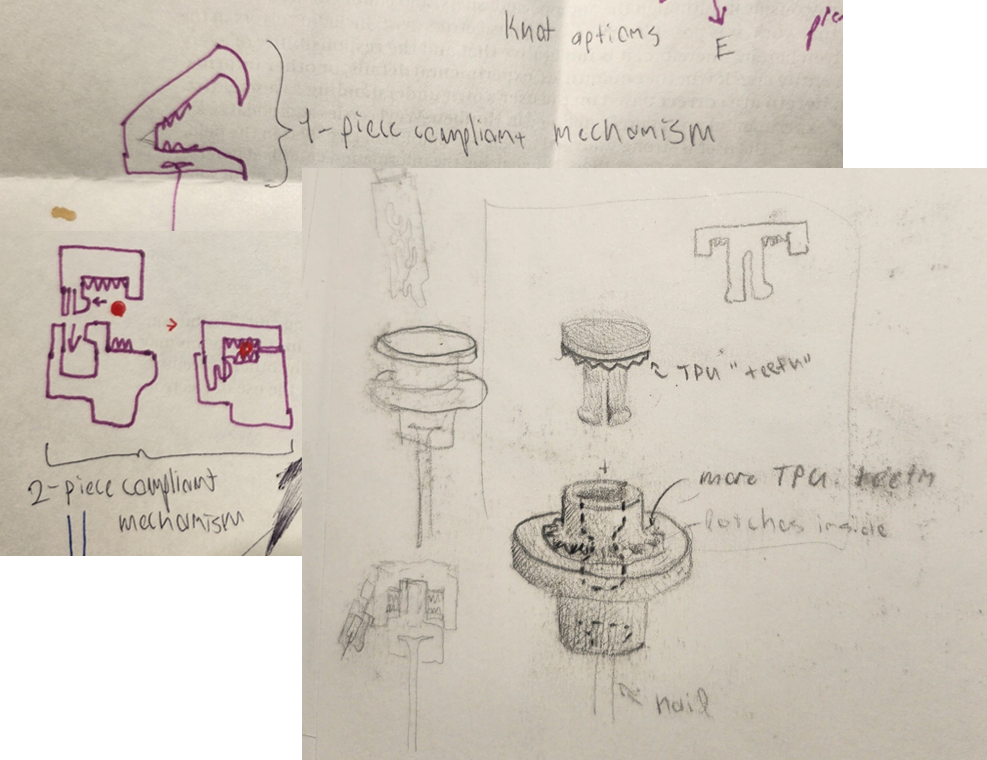 Knot options
E
1-piece compliant mechanism
2-piece compliant
mechamism
TPU "teeth"
+
more TPU teeth
latches inside
nail